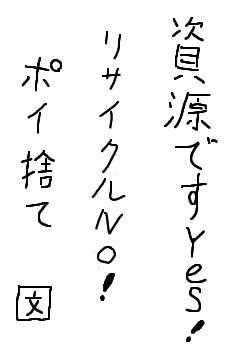 資源ですYes!
リサイクルNO!
ポイ捨て
文